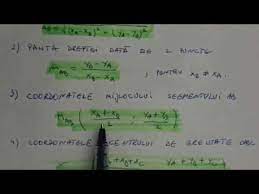 (x_A - x_B)² + (y_A - y_B)²
2) PANTA DREPTEI DATĂ DE 2 PUNCTE
m_AB = (y_B - y_A) / (x_B - x_A) , PENTRU x_B ≠ x_A.
3) COORDONATELE MIJLOCULUI SEGMENTULUI AB
M_AB ( (x_A + x_B) / 2 ; (y_A + y_B) / 2 )
4) COORDONATELE DE GREUTATE